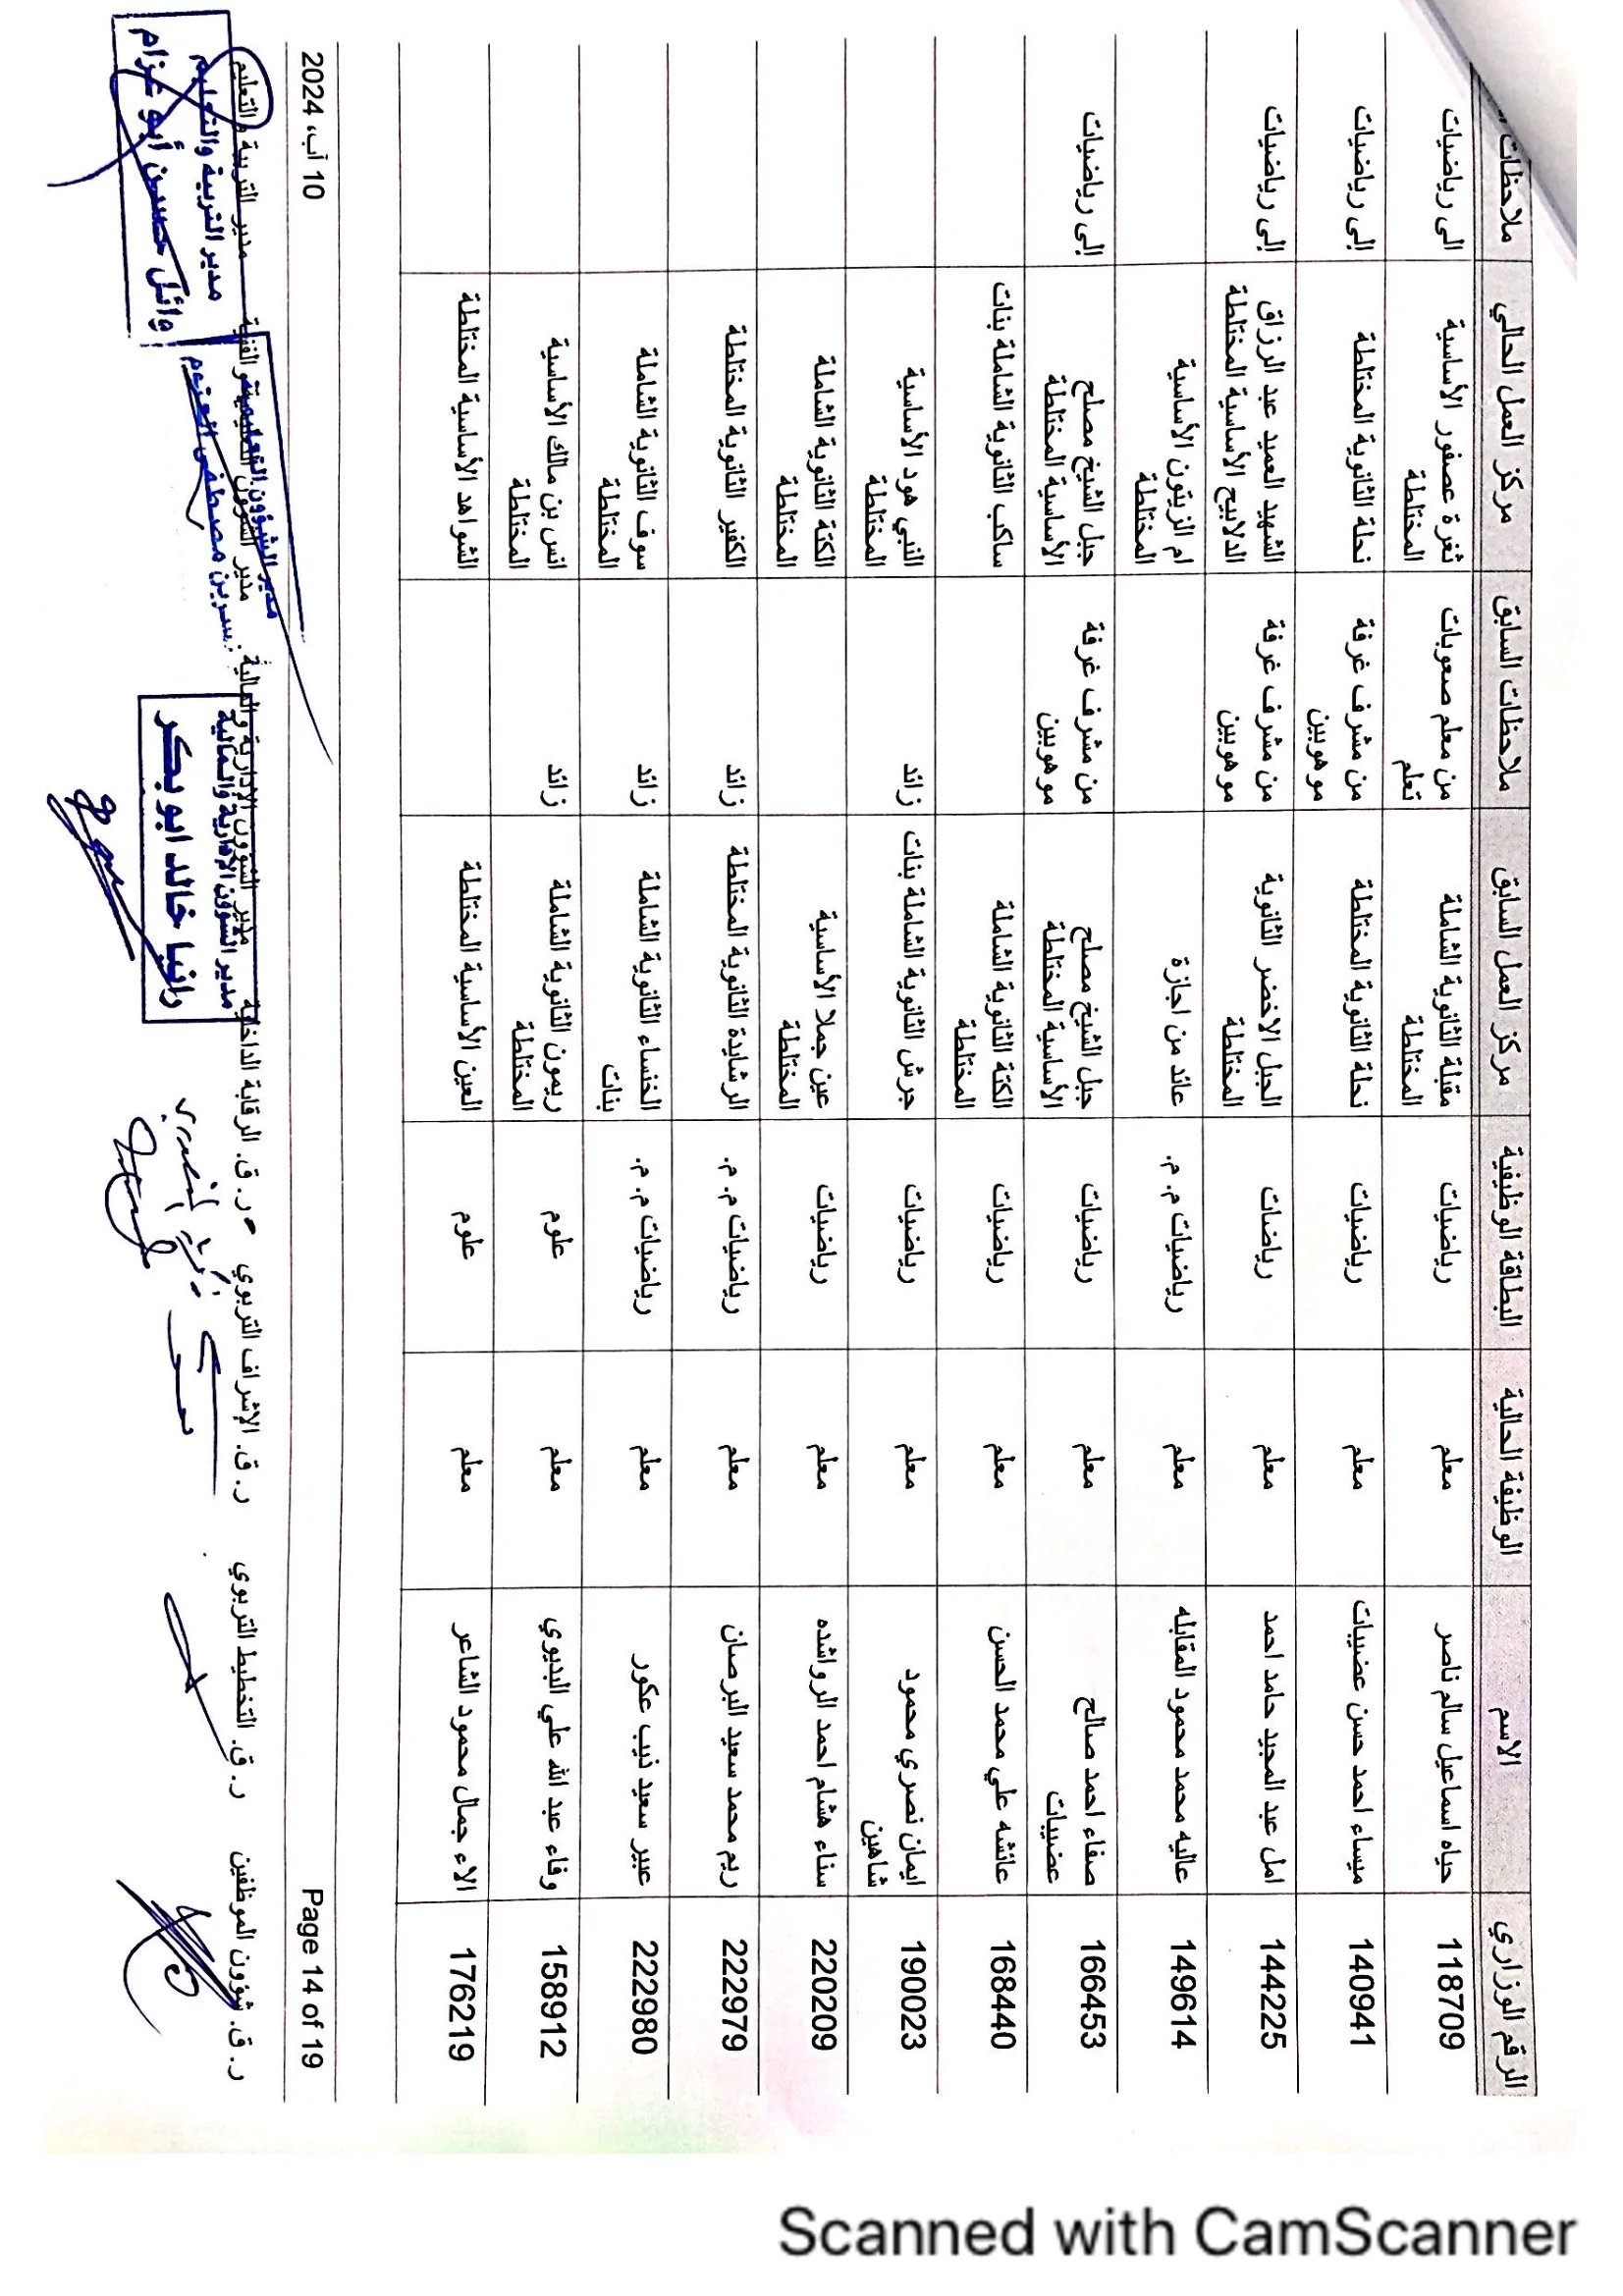 الرقم الوزاري الاسم الوظيفة الحالية البطاقة الوظيفية مركز العمل السابق ملاحظات السابق مركز العمل الحالي ملاحظات
118709 حياه اسماعيل سالم ناصر معلم رياضيات مقبلة الثانوية الشاملة المختلطة من معلم صعوبات تعلم ثغرة عصفور الأساسية المختلطة الى رياضيات
140941 ميساء احمد حسن عضيبات معلم رياضيات نحلة الثانوية المختلطة من مشرف غرفة موهوبين نحلة الثانوية المختلطة إلى رياضيات
144225 امل عبد المجيد حامد احمد معلم رياضيات الجبل الاخضر الثانوية المختلطة من مشرف غرفة موهوبين الشهيد العميد عبد الرزاق الدلابيح الأساسية المختلطة إلى رياضيات
149614 عاليه محمد محمود المقابله معلم رياضيات م. م. عائد من اجازة ام الزيتون الأساسية المختلطة
166453 صفاء احمد صالح عضيبات معلم رياضيات جبل الشيخ مصلح الأساسية المختلطة من مشرف غرفة موهوبين جبل الشيخ مصلح الأساسية المختلطة إلى رياضيات
168440 عائشه علي محمد الحسن معلم رياضيات الكتة الثانوية الشاملة المختلطة ساكب الثانوية الشاملة بنات
190023 ايمان نصري محمود شاهين معلم رياضيات جرش الثانوية الشاملة بنات زائد النبي هود الأساسية المختلطة
220209 سناء هشام احمد الرواشده معلم رياضيات عين جملا الأساسية المختلطة الكتة الثانوية الشاملة المختلطة
222979 ريم محمد سعيد البرصان معلم رياضيات م. م. الرشايدة الثانوية المختلطة زائد الكفير الثانوية المختلطة
222980 عبير سعيد ذيب عكور معلم رياضيات م. م. الخنساء الثانوية الشاملة بنات زائد سوف الثانوية الشاملة المختلطة
158912 وفاء عبد الله علي البديوي معلم علوم ريمون الثانوية الشاملة المختلطة زائد انس بن مالك الأساسية المختلطة
176219 الاء جمال محمود الشاعر معلم علوم العين الأساسية المختلطة الشواهد الأساسية المختلطة
Page 14 of 19 10 آب، 2024
ر. ق. شؤون الموظفين ر. ق. التخطيط التربوي ر. ق. الإشراف التربوي ر. ق. الرقابة الداخلية مدير الشؤون الإدارية والمالية مدير الشؤون التعليمية والفنية مدير التربية والتعليم
مدير الشؤون الإدارية والمالية
رانيا خالد ابو بكر
مدير الشؤون التعليمية
نسرين مصطفى العتوم
مدير التربية والتعليم
وائل حسن أبو عزام
Scanned with CamScanner